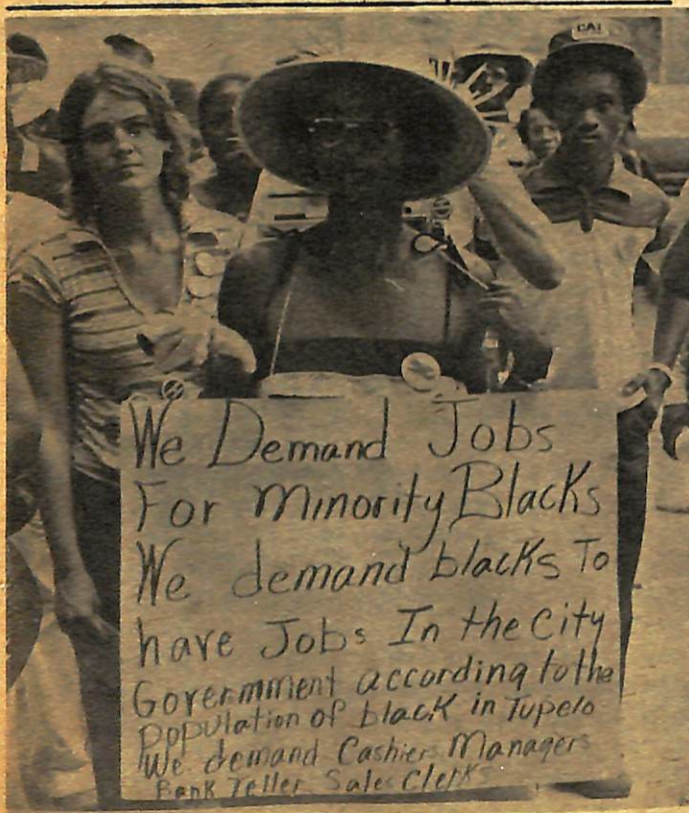 CAT
We Demand Jobs
For Minority Blacks
We demand blacks To
have Jobs In the City
Government according to the
population of black in Tupelo
We demand Cashiers Managers
Bank Teller Sales Clerks